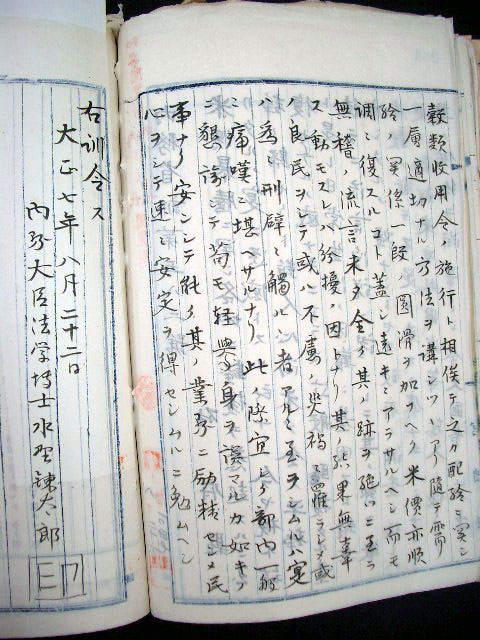 穀類收用令ノ施行ト相俟テ之カ配給ニ関シ
一層適切ナル方法ヲ講シツヽアリ随テ需
給ノ関係一段ノ圓滑ヲ加フヘク米價亦順
調ニ復スルコト蓋シ遠キニアラサルヘシ而モ
無稽ノ流言未タ全ク其ノ跡ヲ絶ツニ至ラ
ス動モスレハ紛擾ノ因トナリ其ノ結果無辜
ノ良民ヲシテ或ハ不慮ノ災禍ニ罹ラシメ或
ハ為ニ刑辟ニ觸ルヽ者アルニ至ヲシムルハ寔
ニ痛嘆ニ堪ヘサルナリ此ノ際宜シク部内一般
ニ懇諭シテ苟モ軽擧身ヲ誤マルカ如キノ
事ナク安ンシテ能ク其ノ業務ニ励精セシメ民
心ヲシテ速ニ安定ヲ得セシムルニ勉ムヘシ
右訓令ス
大正七年八月二十二日
内務大臣法学博士水野錬太郎